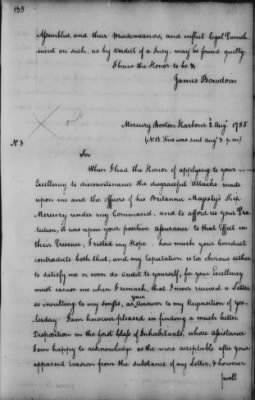 Assemblies, and their Misdemeanors, and inflict legal Punish
ment on such, as by Verdict of a Jury, may be found guilty.
I have the Honor to be &
James Bowdoin
Mercury Boston Harbour 2 Augt 1785
(NB This was sent Augt 3. p.m)
N. 3
Sir
When I had the Honor of applying to your
Excellency to discountenance the disgraceful attacks made
upon me and the officers of his Britannic Majesty's Ship
Mercury under my Command, and to afford us your Pro
tection, it was upon your positive assurance to that Effect in
their Presence, I rested my Hope. how much your Conduct
contradicts both that, and my Expectation is too obvious either
to satisfy me or even do credit to yourself, for your Excellency
must excuse me when I remark, that I never received a Letter
so insulting to my senses, as your Answer to my Requisition of yes-
terday. I am however pleased in finding a much better
Disposition in the first Class of Inhabitants, whose assistance
I am happy to acknowledge as the more acceptable after your
apparent evasion from the substance of my Letter, & however
well